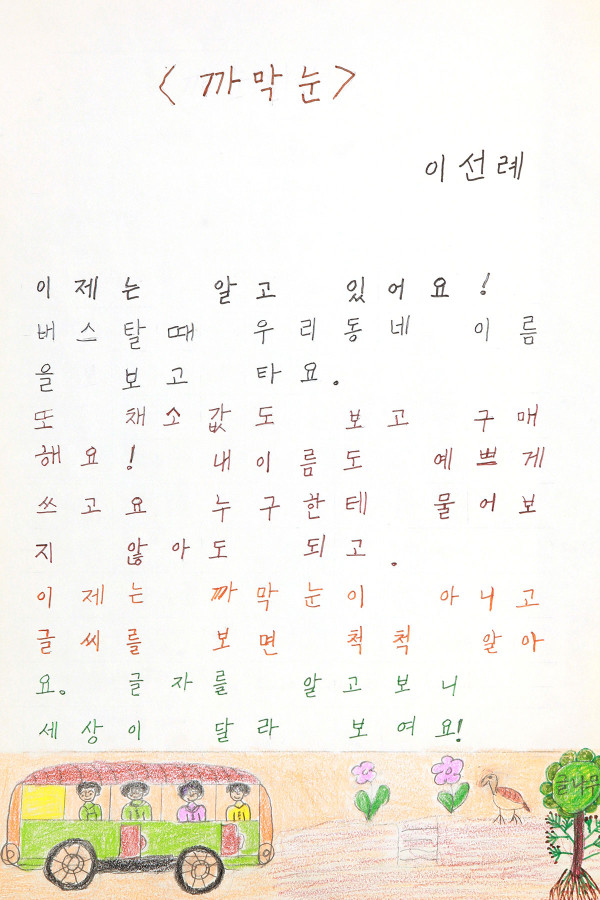 <까막눈>
이선례
이제는 알고 있어요!
버스탈때 우리동네 이름
을 보고 타요.
또 채소값도 보고 구매
해요! 내이름도 예쁘게
쓰고요 누구한테 물어보
지 않아도 되고.
이제는 까막눈이 아니고
글씨를 보면 척척 알아
요. 글자를 알고보니
세상이 달라 보여요!
글나무